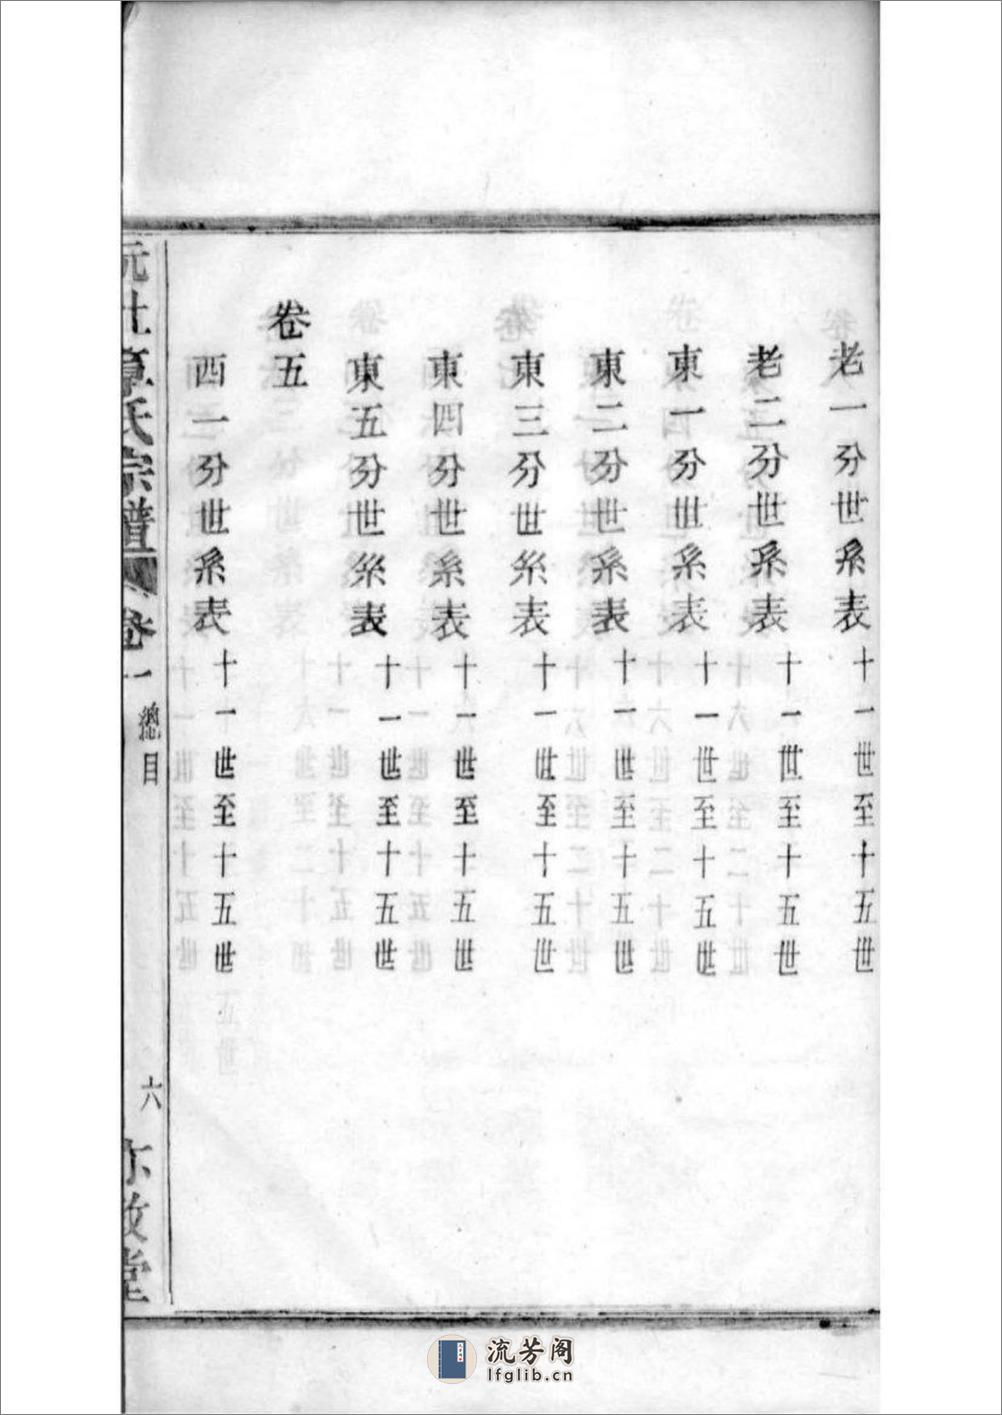 老一分世系表 十一世至十五世
老二分世系表 十一世至十五世
東一分世系表 十一世至十五世
東二分世系表 十一世至十五世
東三分世系表 十一世至十五世
東四分世系表 十一世至十五世
東五分世系表 十一世至十五世
卷五
西一分世系表 十一世至十五世
阮社章氏宗譜 卷一 總目 六 堂
流芳阁
lfglib.cn